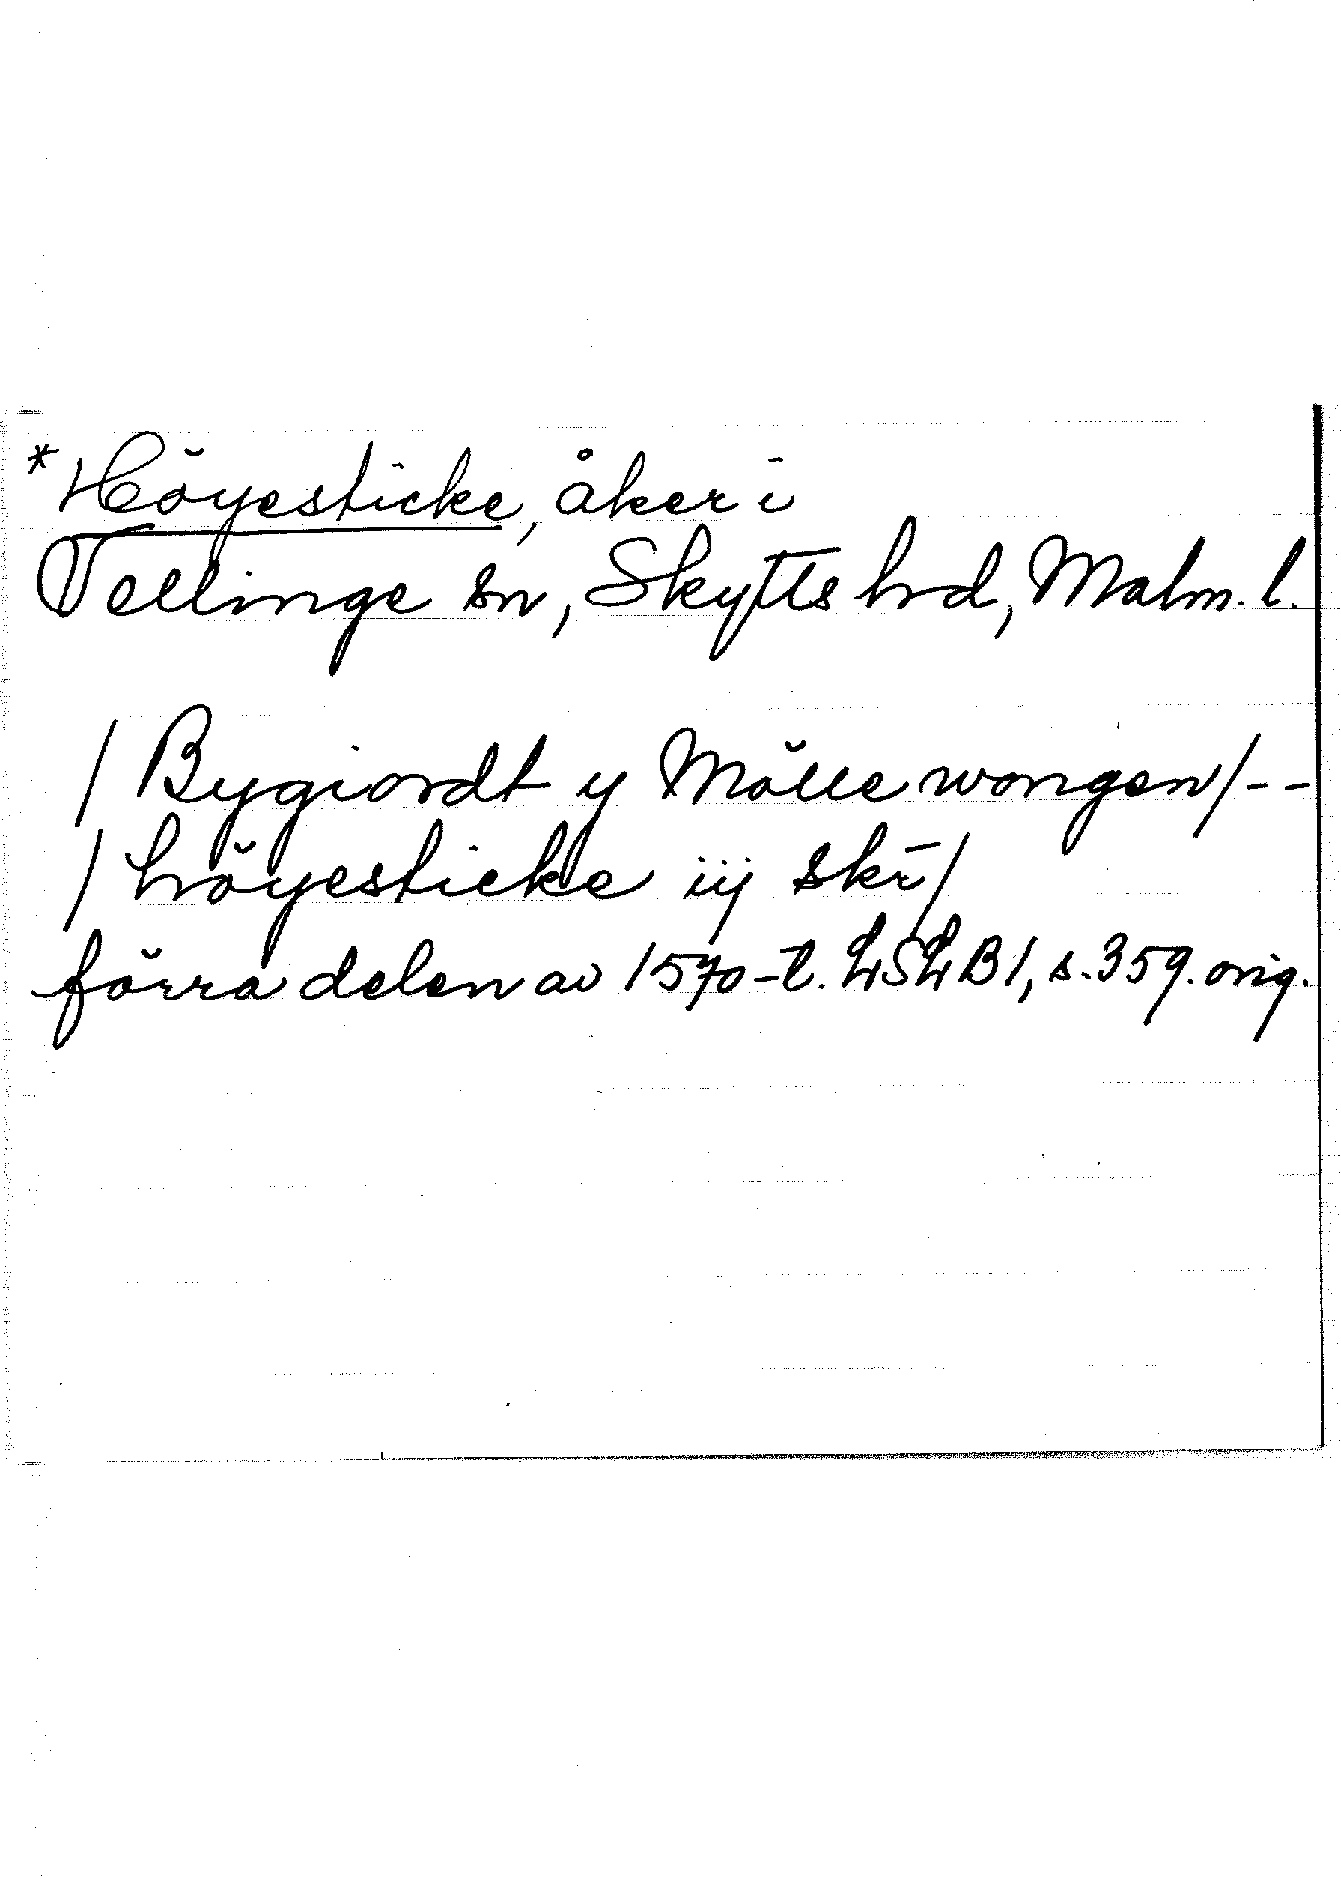 *Höyesticke, åker i
Vellinge sn, Skytts hd, Malm. l.
/ Bygiordt y Mölle wongen/--
/ höyesticke iij skr̄/
förra delen av 1570-t. LSLB1, s. 359. orig.